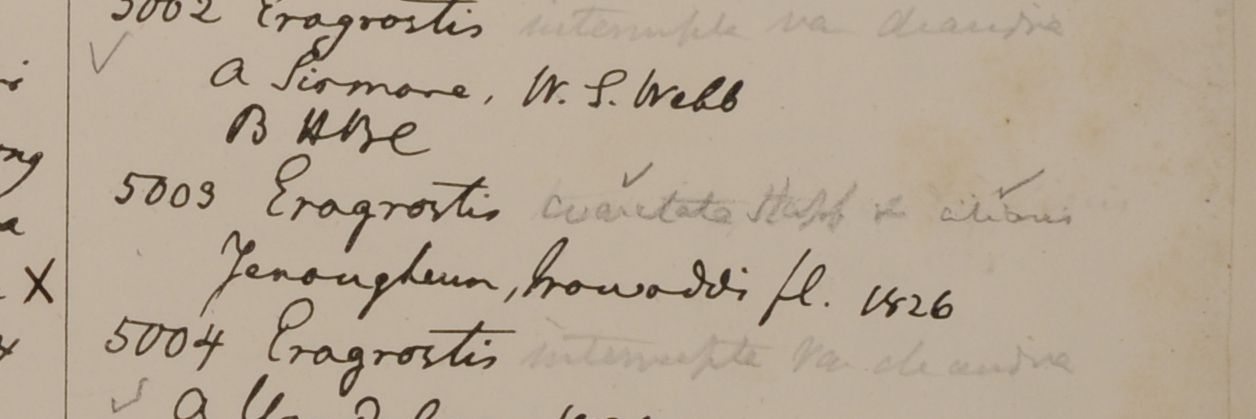 5002 Eragrostis interrupta var diandra
a Sirmore, W. S. Webb
B HBC
5003 Eragrostis Stapf & ciliaris
Jenangheun, Irawaddi fl. 1826
5004 Eragrostis interrupta var diandra
a